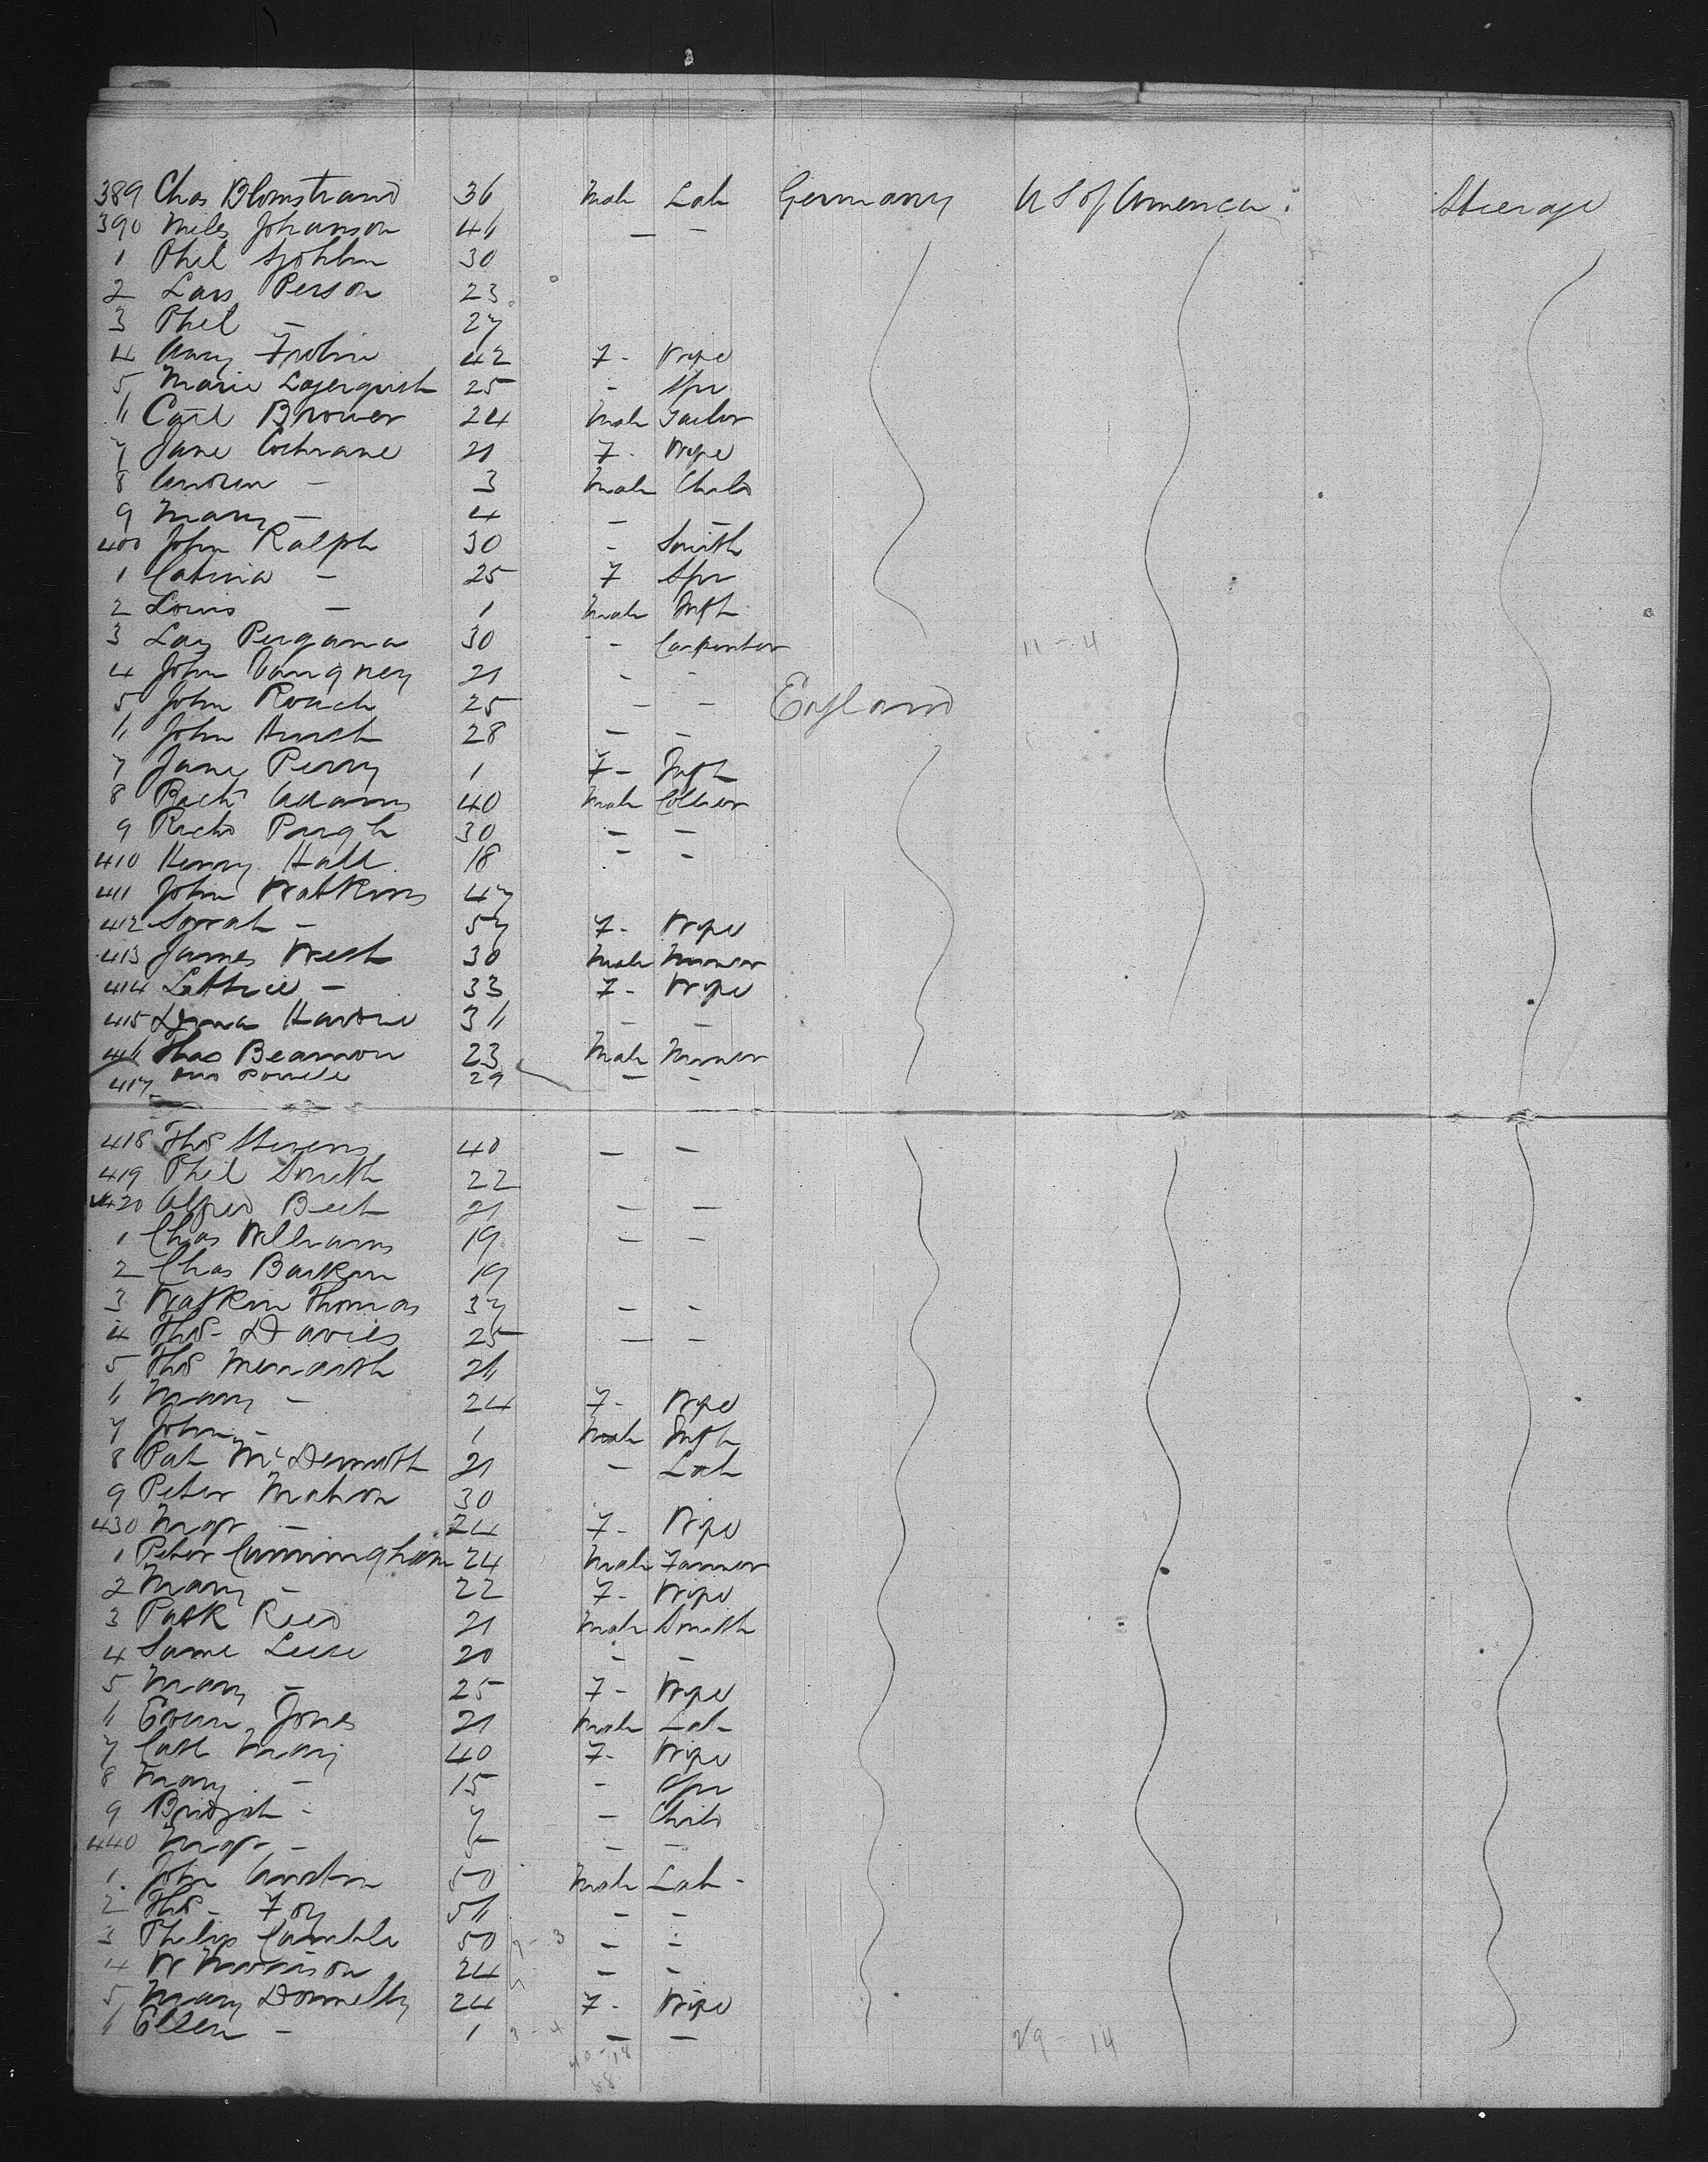 389 Chas Blomstrand 36 Male Lab Germany U S of America Steerage
390 Niles Johanson 46 — —
1 Phil Sjohlm 30
2 Lars Person 23
3 Phil — 27
4 Amy Frolin 42 F - Wife
5 Marie Lagerquist 25 - Spr
6 Carl Brower 24 Male Tailor
7 Jane Cochrane 21 F - Wife
8 Andrew — 3 Male Child
9 Mary — 4 — —
400 John Ralph 30 - Smith
1 Catrina — 25 F Spr
2 Louis — 1 Male Inft
3 Lars Pergama 30 - Carpenter 11 - 4
4 John 21 - -
5 John Roach 25 — — England
6 John Hurst 28 — —
7 Jane Perry 1 F - Inft
8 Adams 40 Male Collier
9 Richd Paugh 30 — —
410 Henry Hall 18 - -
411 John Watkins 47
412 Sarah — 57 F - Wife
413 James West 30 Male Miner
414 Lettice — 33 F - Wife
415 36 — —
416 Thos Beamon 23 Male Miner
417 Powell 29 — -
418 Thos Stevens 40 — —
419 Phil Smith 22
420 Alfred Beck 21 — —
1 Chas Williams 19 - -
2 Chas Barkin 19
3 Watkin Thomas 37 - -
4 Thos - Davies 25 — -
5 Thos Merideth 26
6 Mary — 24 F - Wife
7 John — 1 Male Inft
8 Pat McDermoth 21 - Lab
9 Peter Mahon 30
430 Margr — 24 F - Wife
1 Peter Cunningham 24 Male Farmer
2 Mary — 22 F - Wife
3 Patk Reed 21 Male Smith
4 Saml 20 - -
5 Mary — 25 F - Wife
6 Evan Jones 21 Male Lab -
7 Cath 40 F - Wife
8 Mary — 15 - Spr
9 Bridget - 7 - Child
440 Margr — 5 — —
1 John Austin 50 Male Lab -
2 Thos - Foy 56 — —
3 Philip 50 7 - 3 — —
4 W Morrison 24 — -
5 Mary Donnelly 24 F - Wife
6 Ellen — 1 3 - 4 — — 29 - 14
40 - 18